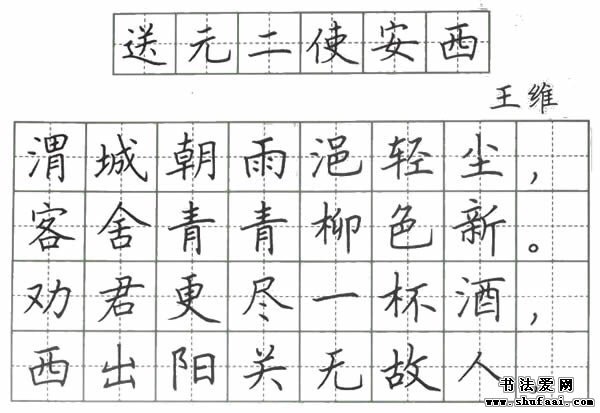 送元二使安西
王维
渭城朝雨浥轻尘，
客舍青青柳色新。
劝君更尽一杯酒，
西出阳关无故人
书法爱网
www.shufaai.com